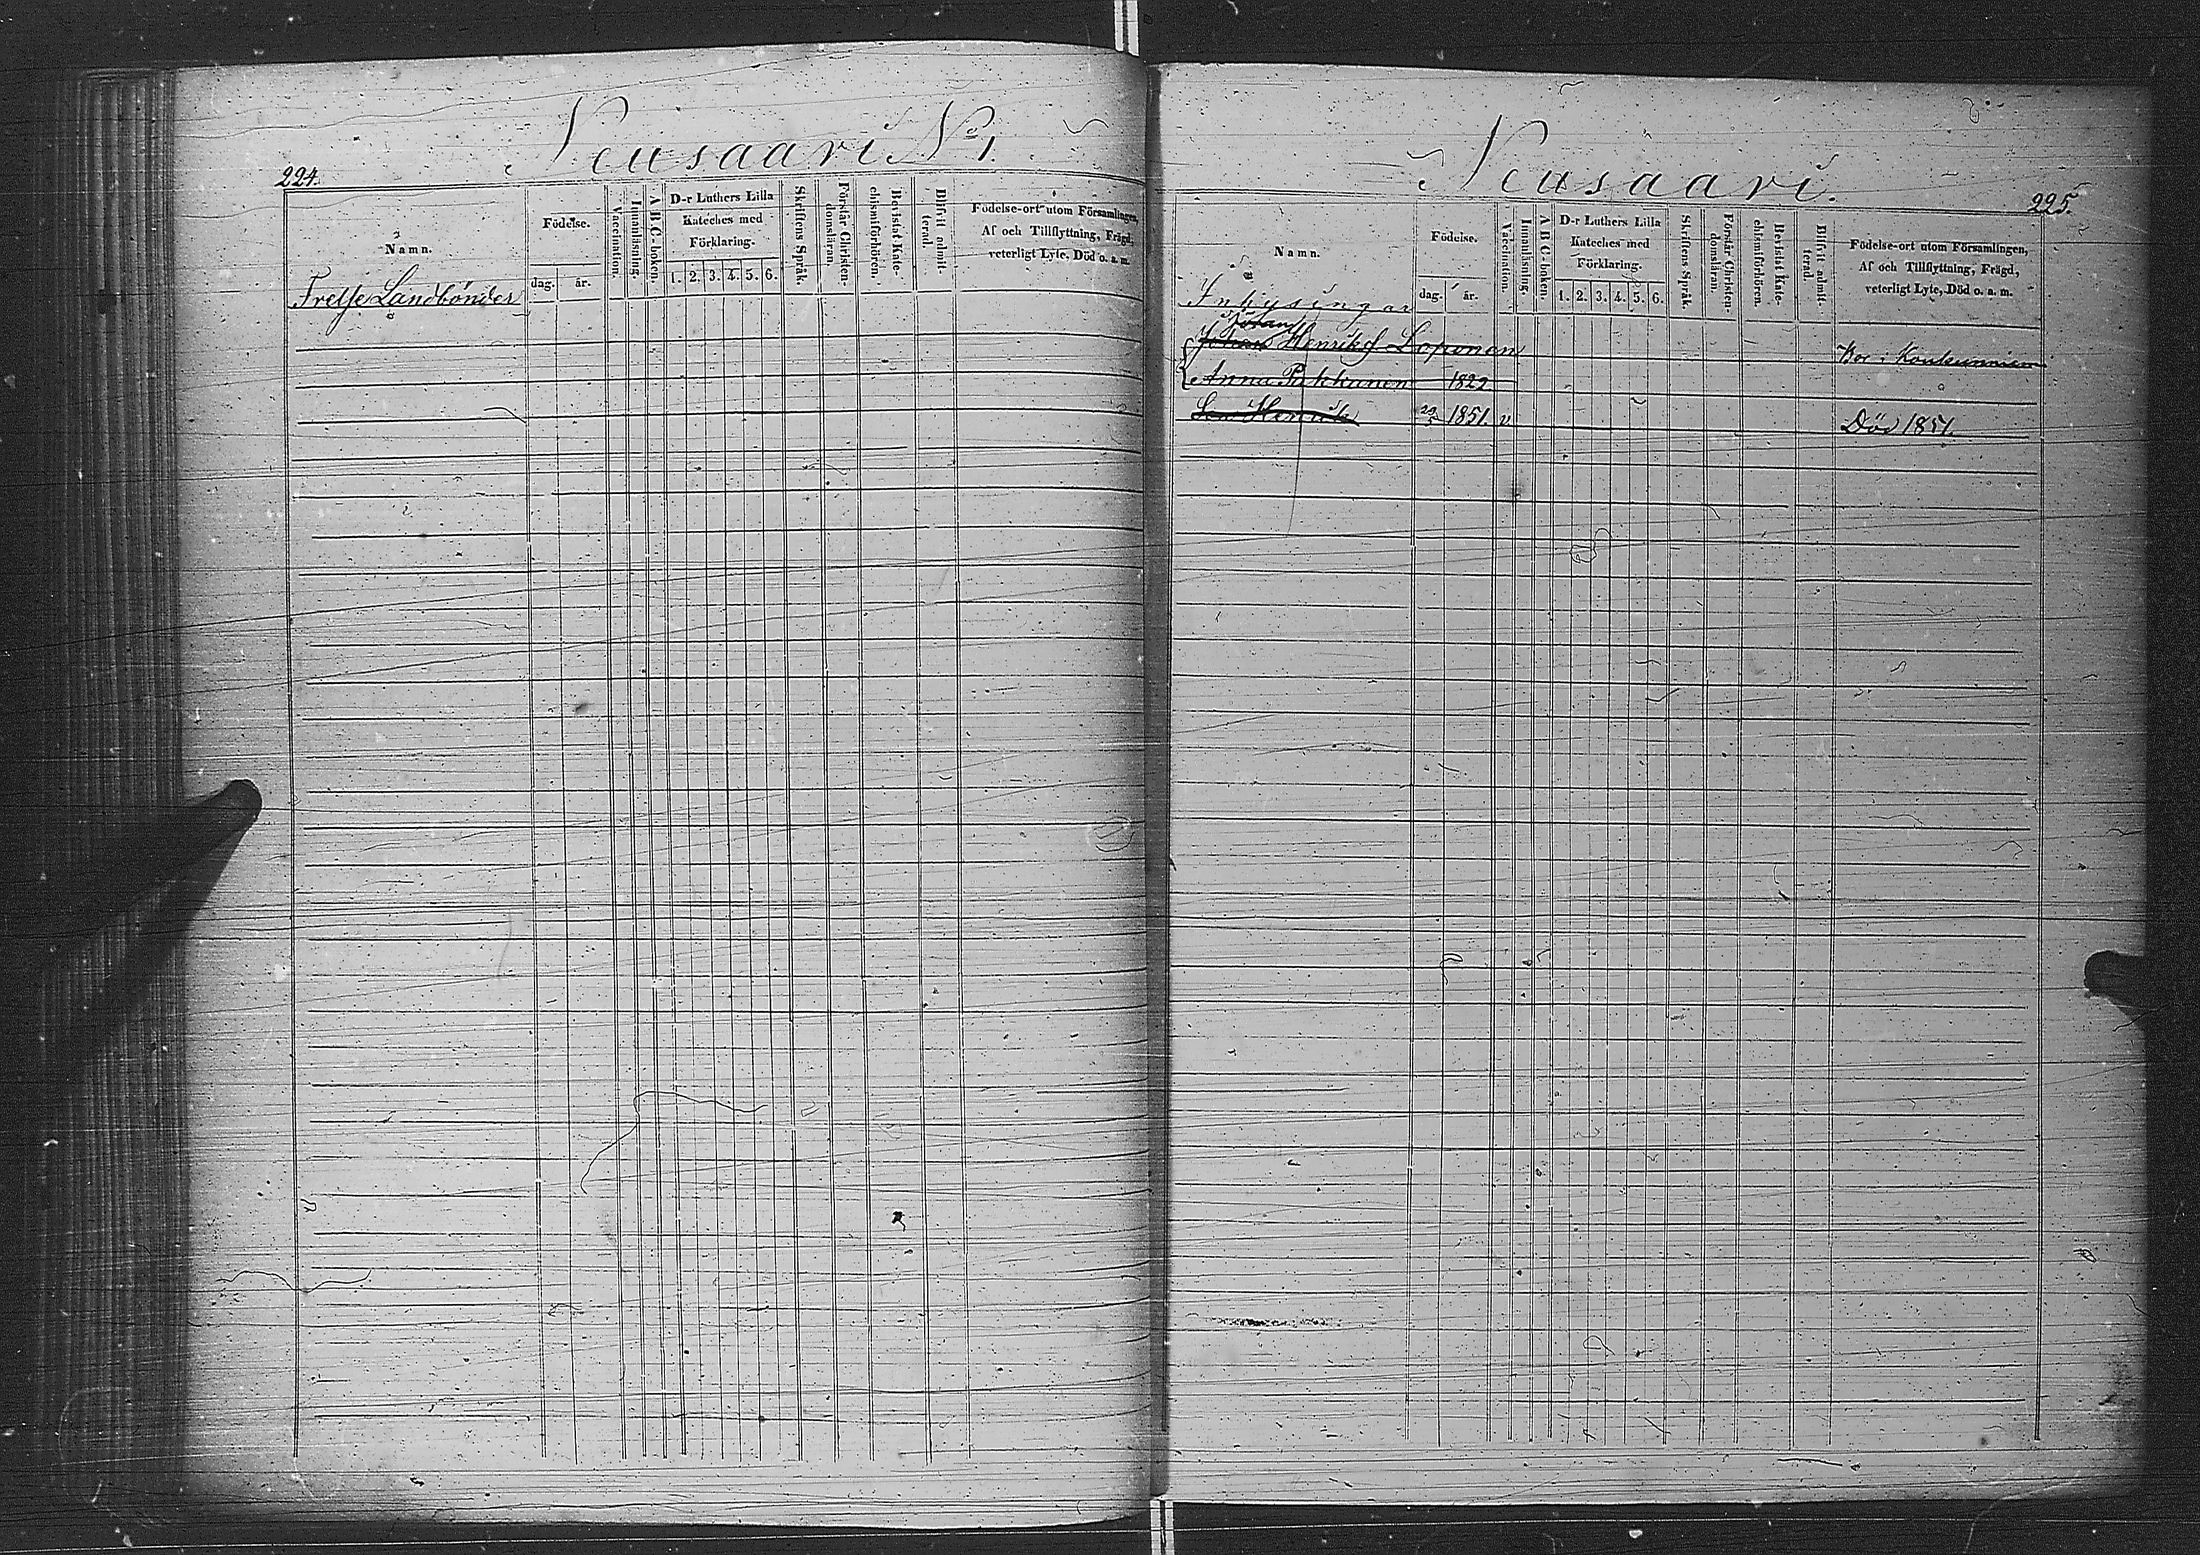 224.
Neusaari No 1.
Namn.
Födelse.
dag.
år.
Vaccination.
Innanläsning.
A B C-boken.
D-r Luthers Lilla
Kateches med
Förklaring.
1. 2. 3. 4. 5. 6.
Skriftens Språk.
Förstår Christen-
domsläran.
Bevistat Kate-
chismiförhören.
Blifvit admit-
terad.
Födelse-ort utom Församlingen,
Af och Tillflyttning, Frägd,
veterligt Lyte, Död o. a. m.
Frelse Landbönder
Neusaari.
225.
Namn.
Födelse.
dag.
år.
Vaccination.
Innanläsning.
A B C-boken.
D-r Luthers Lilla
Kateches med
Förklaring.
1. 2. 3. 4. 5. 6.
Skriftens Språk.
Förstår Christen-
domsläran.
Bevistat Kate-
chismiförhören.
Blifvit admit-
terad.
Födelse-ort utom Församlingen,
Af och Tillflyttning, Frägd,
veterligt Lyte, Död o. a. m.
Inhysingar
Göran
Johan Henriks Loponen Bor i
Anna Pukkunen 1822
Henrik 1851. v Död 1851.